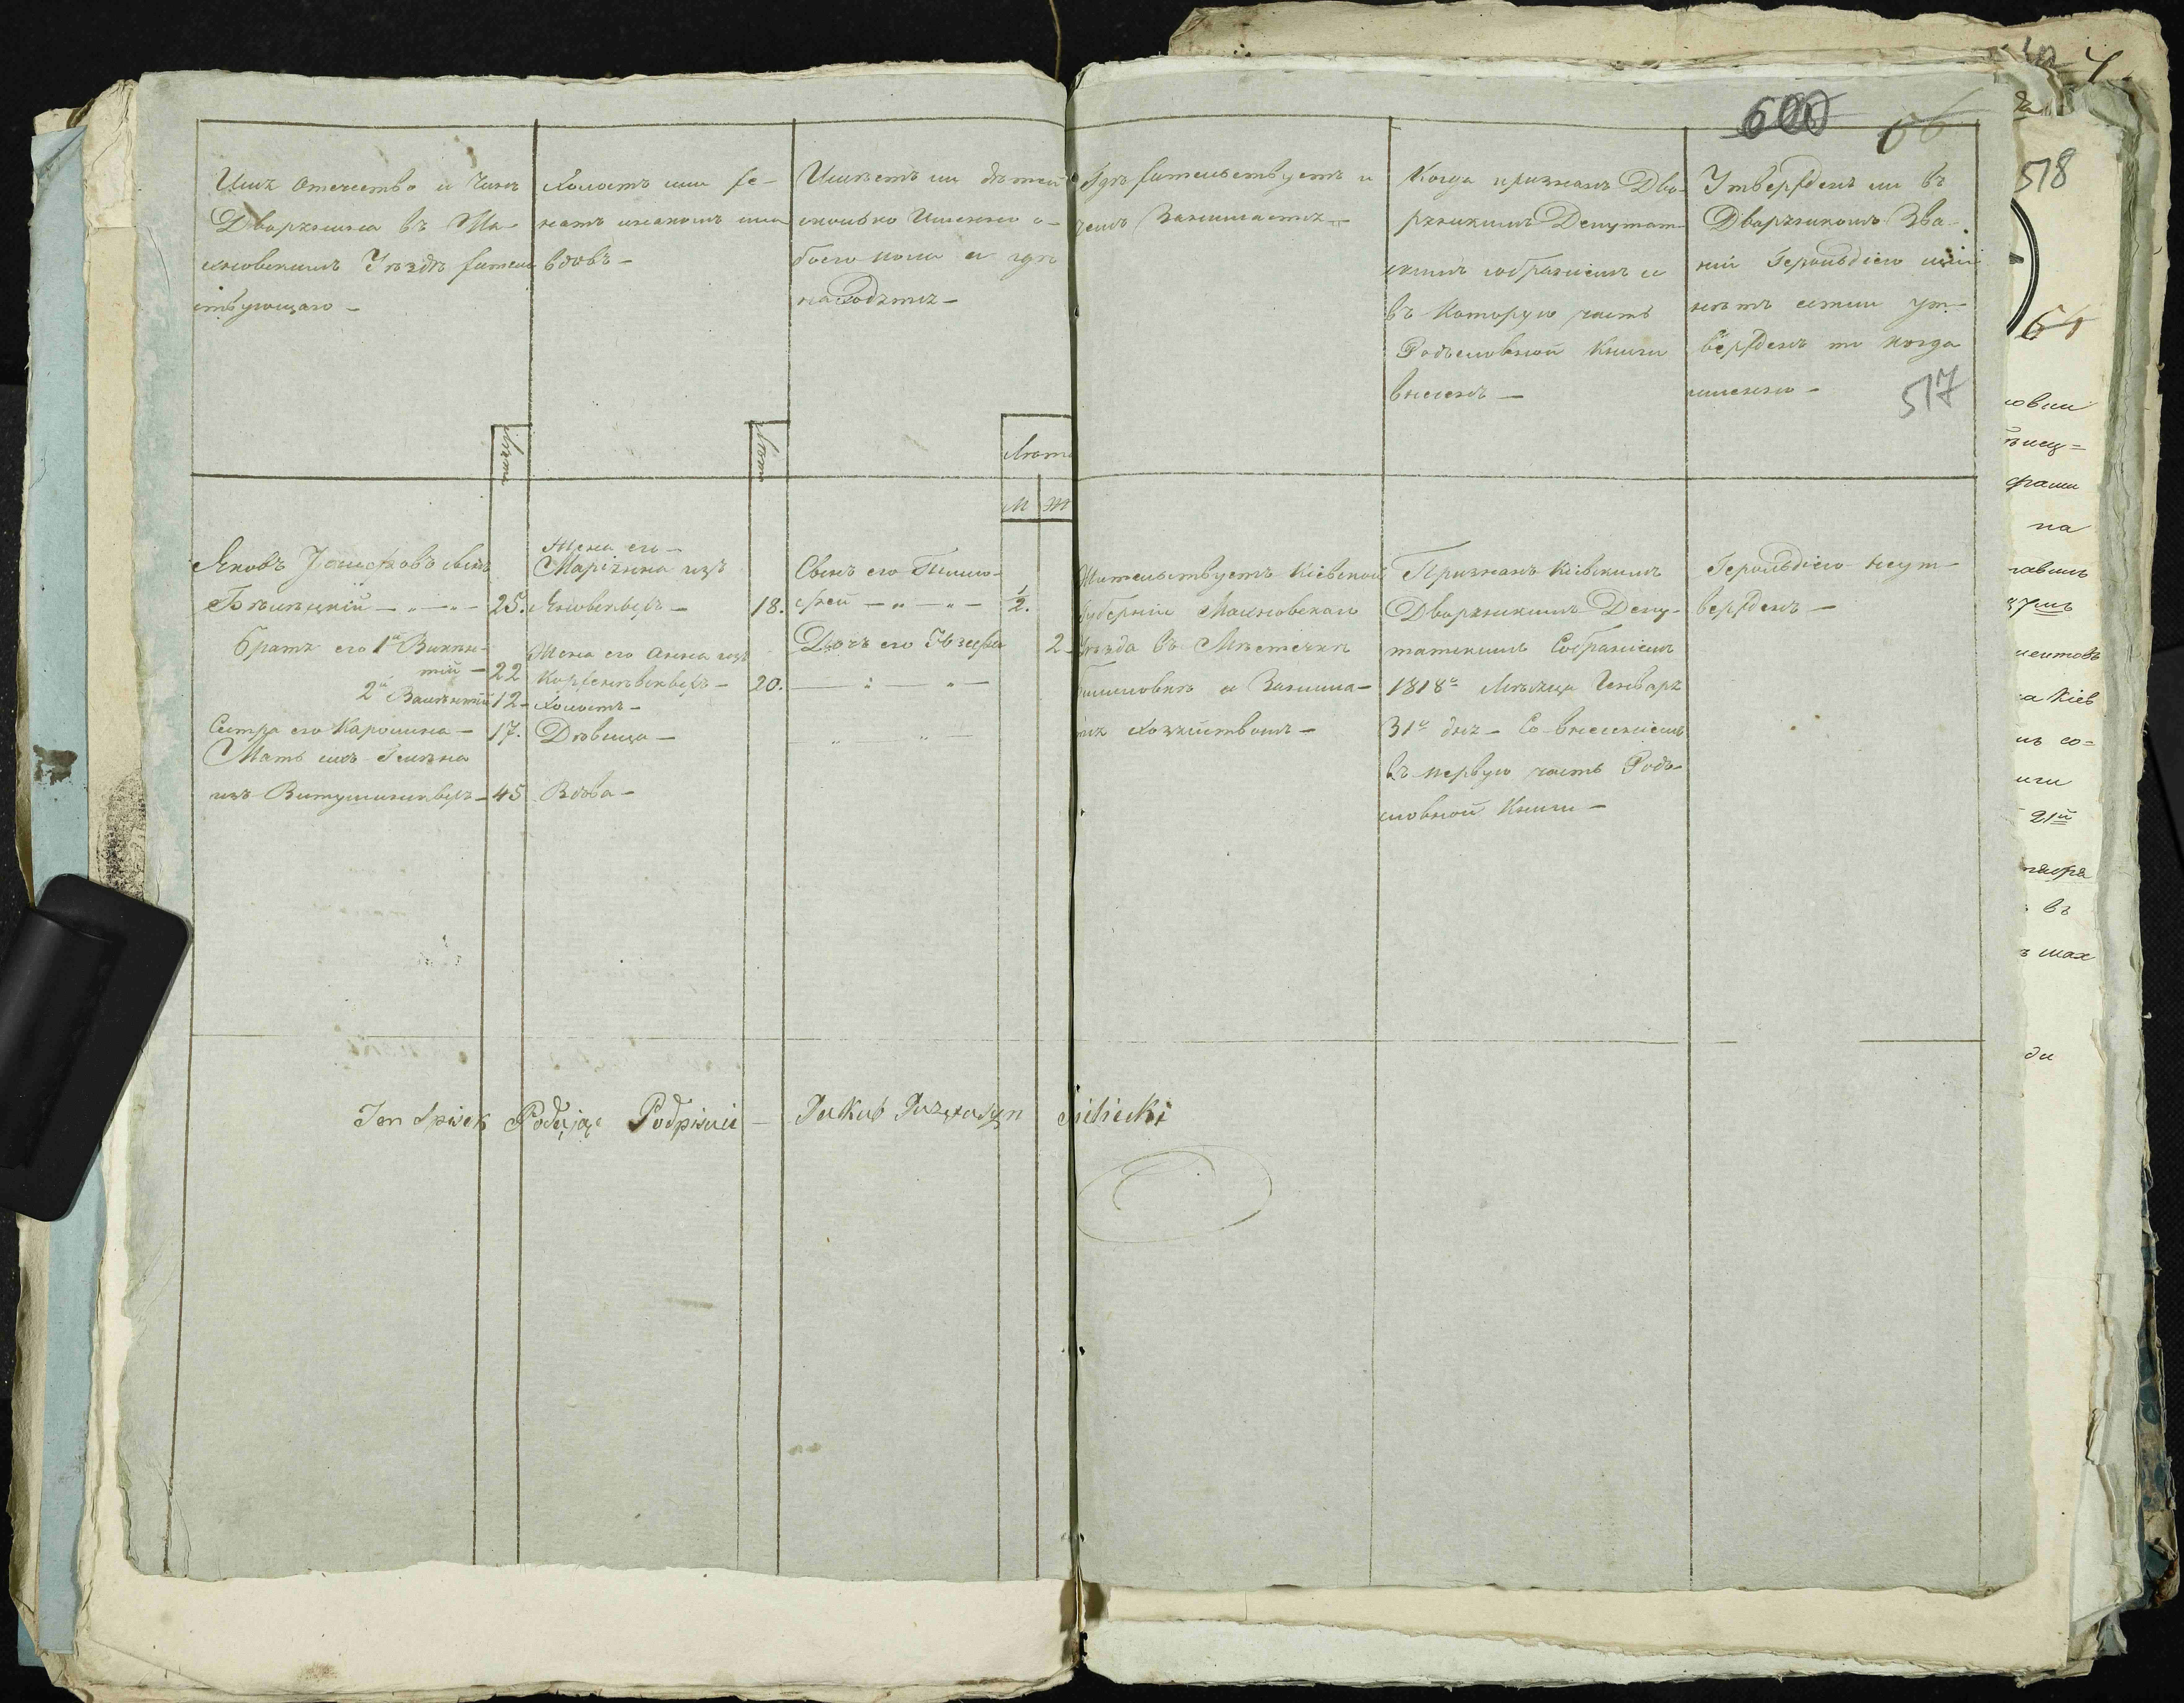 600 56
Имя отечество и Чинъ
Дворянина въ Ма-
хновскомъ Уѣздѣ жител-
ствующаго –
Лѣта
Холостъ или же-
натъ на комъ или
вдовъ –
Лѣта
Имѣетъ ли дѣтей
сколько Именно о-
боего пола и гдѣ
находятся –
Лѣта
М Ж
Гдѣ жительствуетъ и
чемъ Занимается –
Когда признанъ Дво-
рянскимъ Депутат-
скимъ собраніемъ и
въ Которую часть
Родословной Книги
внесенъ –
Утвержденъ ли въ
Дворянскомъ Зва-
ніи Герольдіею или
нѣтъ естли ут-
вержденъ то когда
имянно –
517
Яковъ Іосифовъ сынъ
Бѣлецкій – „ – „ – 25.
братъ его 1й Викен-
тій – 22
2й Валентій 12 –
Сестра его Каролина – 17.
Мать ихъ Елена
изъ – 45
Жена его –
Маріянна изъ
Яновскихъ – 18.
Жена его Анна изъ
20.
Холостъ –
Дѣвица –
Вдова –
Сынъ его Тимо-
фей – „ – „ – ½.
Дочь его Юзефа 2
Жительствуетъ Кіевской
Губерніи Махновскаго
Уѣзда въ Мѣстечкѣ
и Занима-
тся хозяйствомъ –
Признанъ Кіевскимъ
Дворянскимъ Депу-
татскимъ Собраніемъ
1818го Мѣсяца Генваря
31го дня – Со внесеніемъ
въ первую часть Родо-
словной Книги –
Герольдіею неут-
вержденъ –
Ten Spisek Podając Podpisuię – Jakub Bielicki
518
61